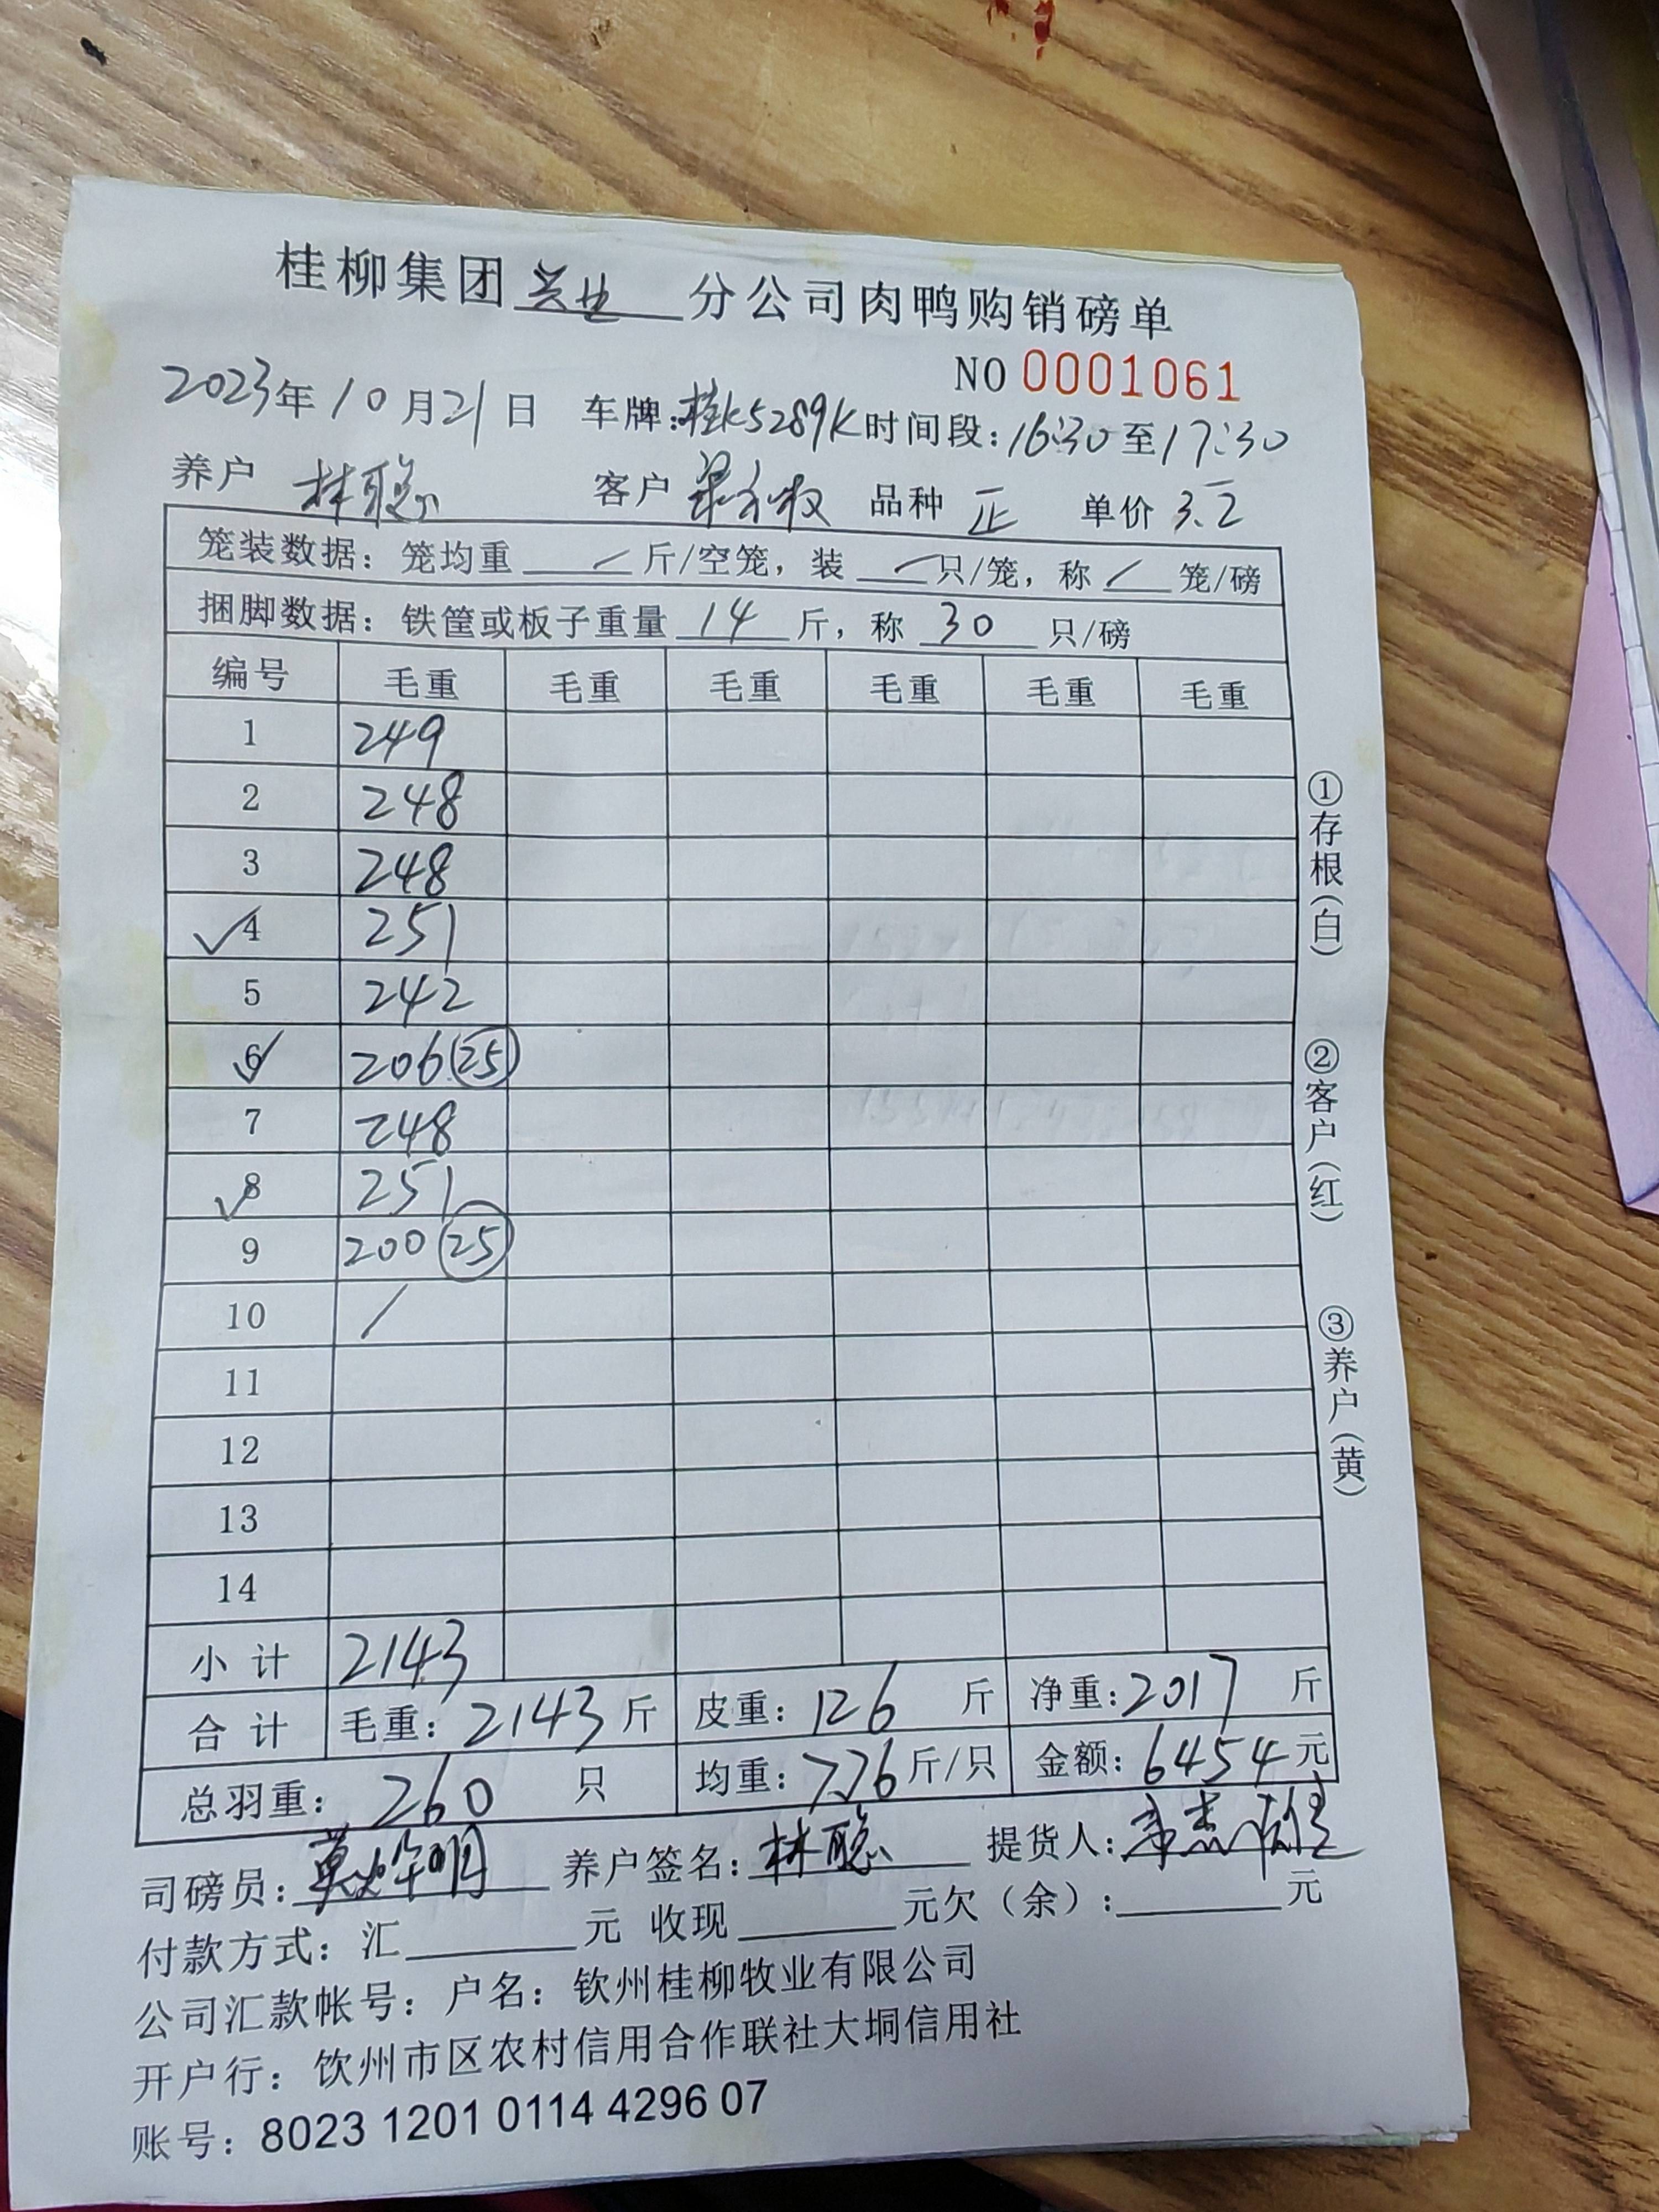 桂柳集团兴业分公司肉鸭购销磅单
NO 0001061
2023年10月21日 车牌:桂K5289K时间段:16:30至17:30
养户 林聪 客户 品种 正 单价 3.2
笼装数据: 笼均重 / 斤/空笼, 装 / 只/笼, 称 / 笼/磅
捆脚数据: 铁筐或板子重量 14 斤, 称 30 只/磅
编号 毛重 毛重 毛重 毛重 毛重 毛重
1 249
2 248
3 248
✓4 251
5 242
✓6 206 (25)
7 248
✓8 251
9 200 (25)
10 /
11
12
13
14
小计 2143
合计 毛重: 2143 斤 皮重: 126 斤 净重: 2017 斤
总羽重: 260 只 均重: 7.76 斤/只 金额: 6454 元
司磅员: 养户签名: 林聪 提货人:
付款方式: 汇 元 收现 元欠(余): 元
公司汇款帐号: 户名: 钦州桂柳牧业有限公司
开户行: 饮州市区农村信用合作联社大垌信用社
账号: 8023 1201 0114 4296 07
①存根(白)
②客户(红)
③养户(黄)